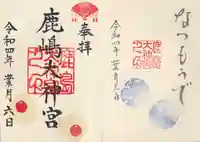 なつもうで
令和四年葉月六日
奉拝
鹿嶋大神宮
令和四年 葉月六日